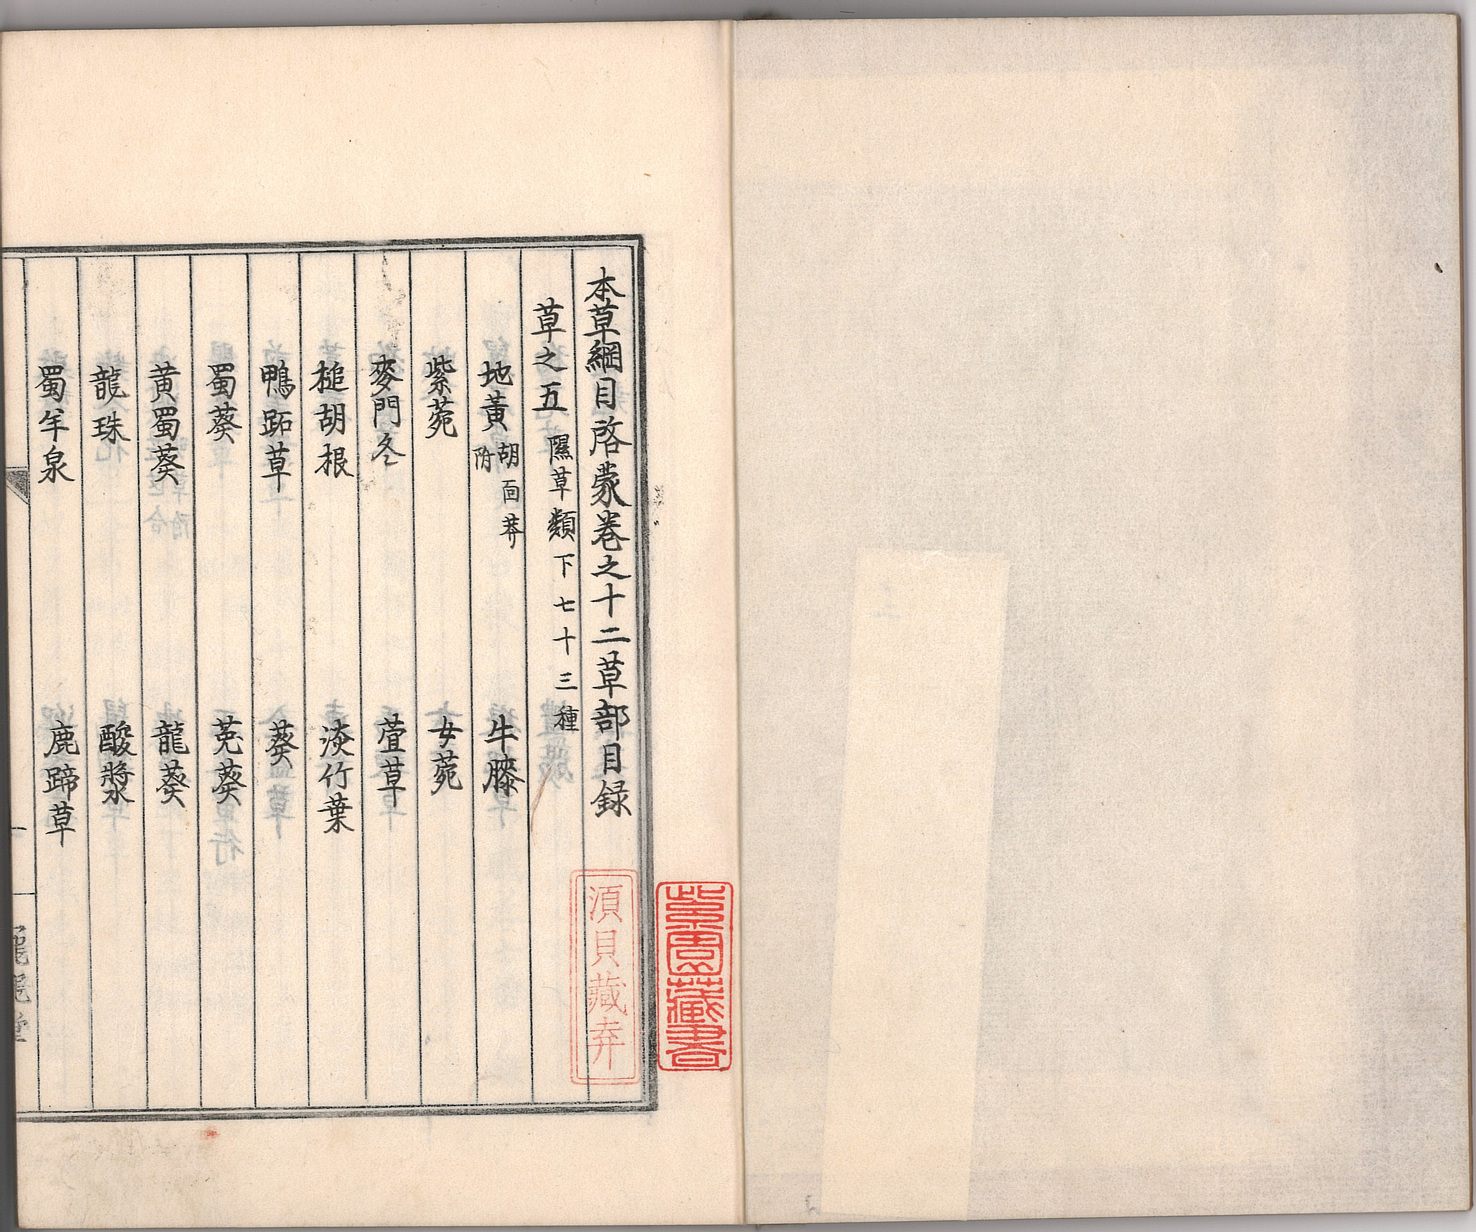 本草綱目啓蒙卷之十二草部目録
草之五 隰草類下七十三種
地黃 胡面莽附 牛膝
紫菀 女菀
麥門冬 萱草
槌胡根 淡竹葉
鴨跖草 葵
蜀葵 莵葵
黄蜀葵 龍葵
龍珠 酸漿
蜀羊泉 鹿蹄草
須貝藏弆
紫雪藏書